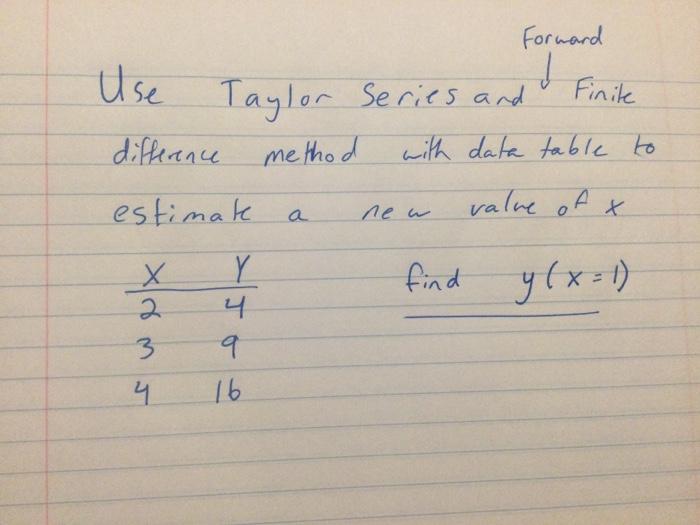 Forward
Use Taylor Series and Finite
difference method with data table to
estimate a new value of x
X Y
find y(x=1)
2 4
3 9
4 16